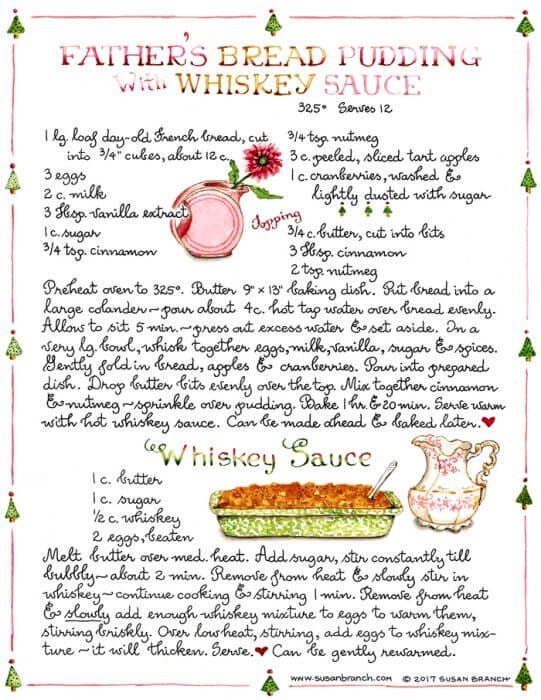 FATHER'S BREAD PUDDING
With WHISKEY SAUCE
325° Serves 12
1 lg. loaf day-old French bread, cut
into 3/4" cubes, about 12 c.
3 eggs
2 c. milk
3 Tbsp. vanilla extract
1 c. sugar
3/4 tsp. cinnamon
3/4 tsp. nutmeg
3 c. peeled, sliced tart apples
1 c. cranberries, washed &
lightly dusted with sugar
Topping
3/4 c. butter, cut into bits
3 Tbsp. cinnamon
2 tsp. nutmeg
Preheat oven to 325°. Butter 9" x 13" baking dish. Put bread into a
large colander~pour about 4c. hot tap water over bread evenly.
Allow to sit 5 min.~press out excess water & set aside. In a
very lg. bowl, whisk together eggs, milk, vanilla, sugar & spices.
Gently fold in bread, apples & cranberries. Pour into prepared
dish. Drop butter bits evenly over the top. Mix together cinnamon
& nutmeg~sprinkle over pudding. Bake 1 hr. & 20 min. Serve warm
with hot whiskey sauce. Can be made ahead & baked later.
Whiskey Sauce
1 c. butter
1 c. sugar
1/2 c. whiskey
2 eggs, beaten
Melt butter over med. heat. Add sugar, stir constantly till
bubbly~about 2 min. Remove from heat & slowly stir in
whiskey~continue cooking & stirring 1 min. Remove from heat
& slowly add enough whiskey mixture to eggs to warm them,
stirring briskly. Over low heat, stirring, add eggs to whiskey mix-
ture~it will thicken. Serve. Can be gently rewarmed.
www.susanbranch.com © 2017 SUSAN BRANCH